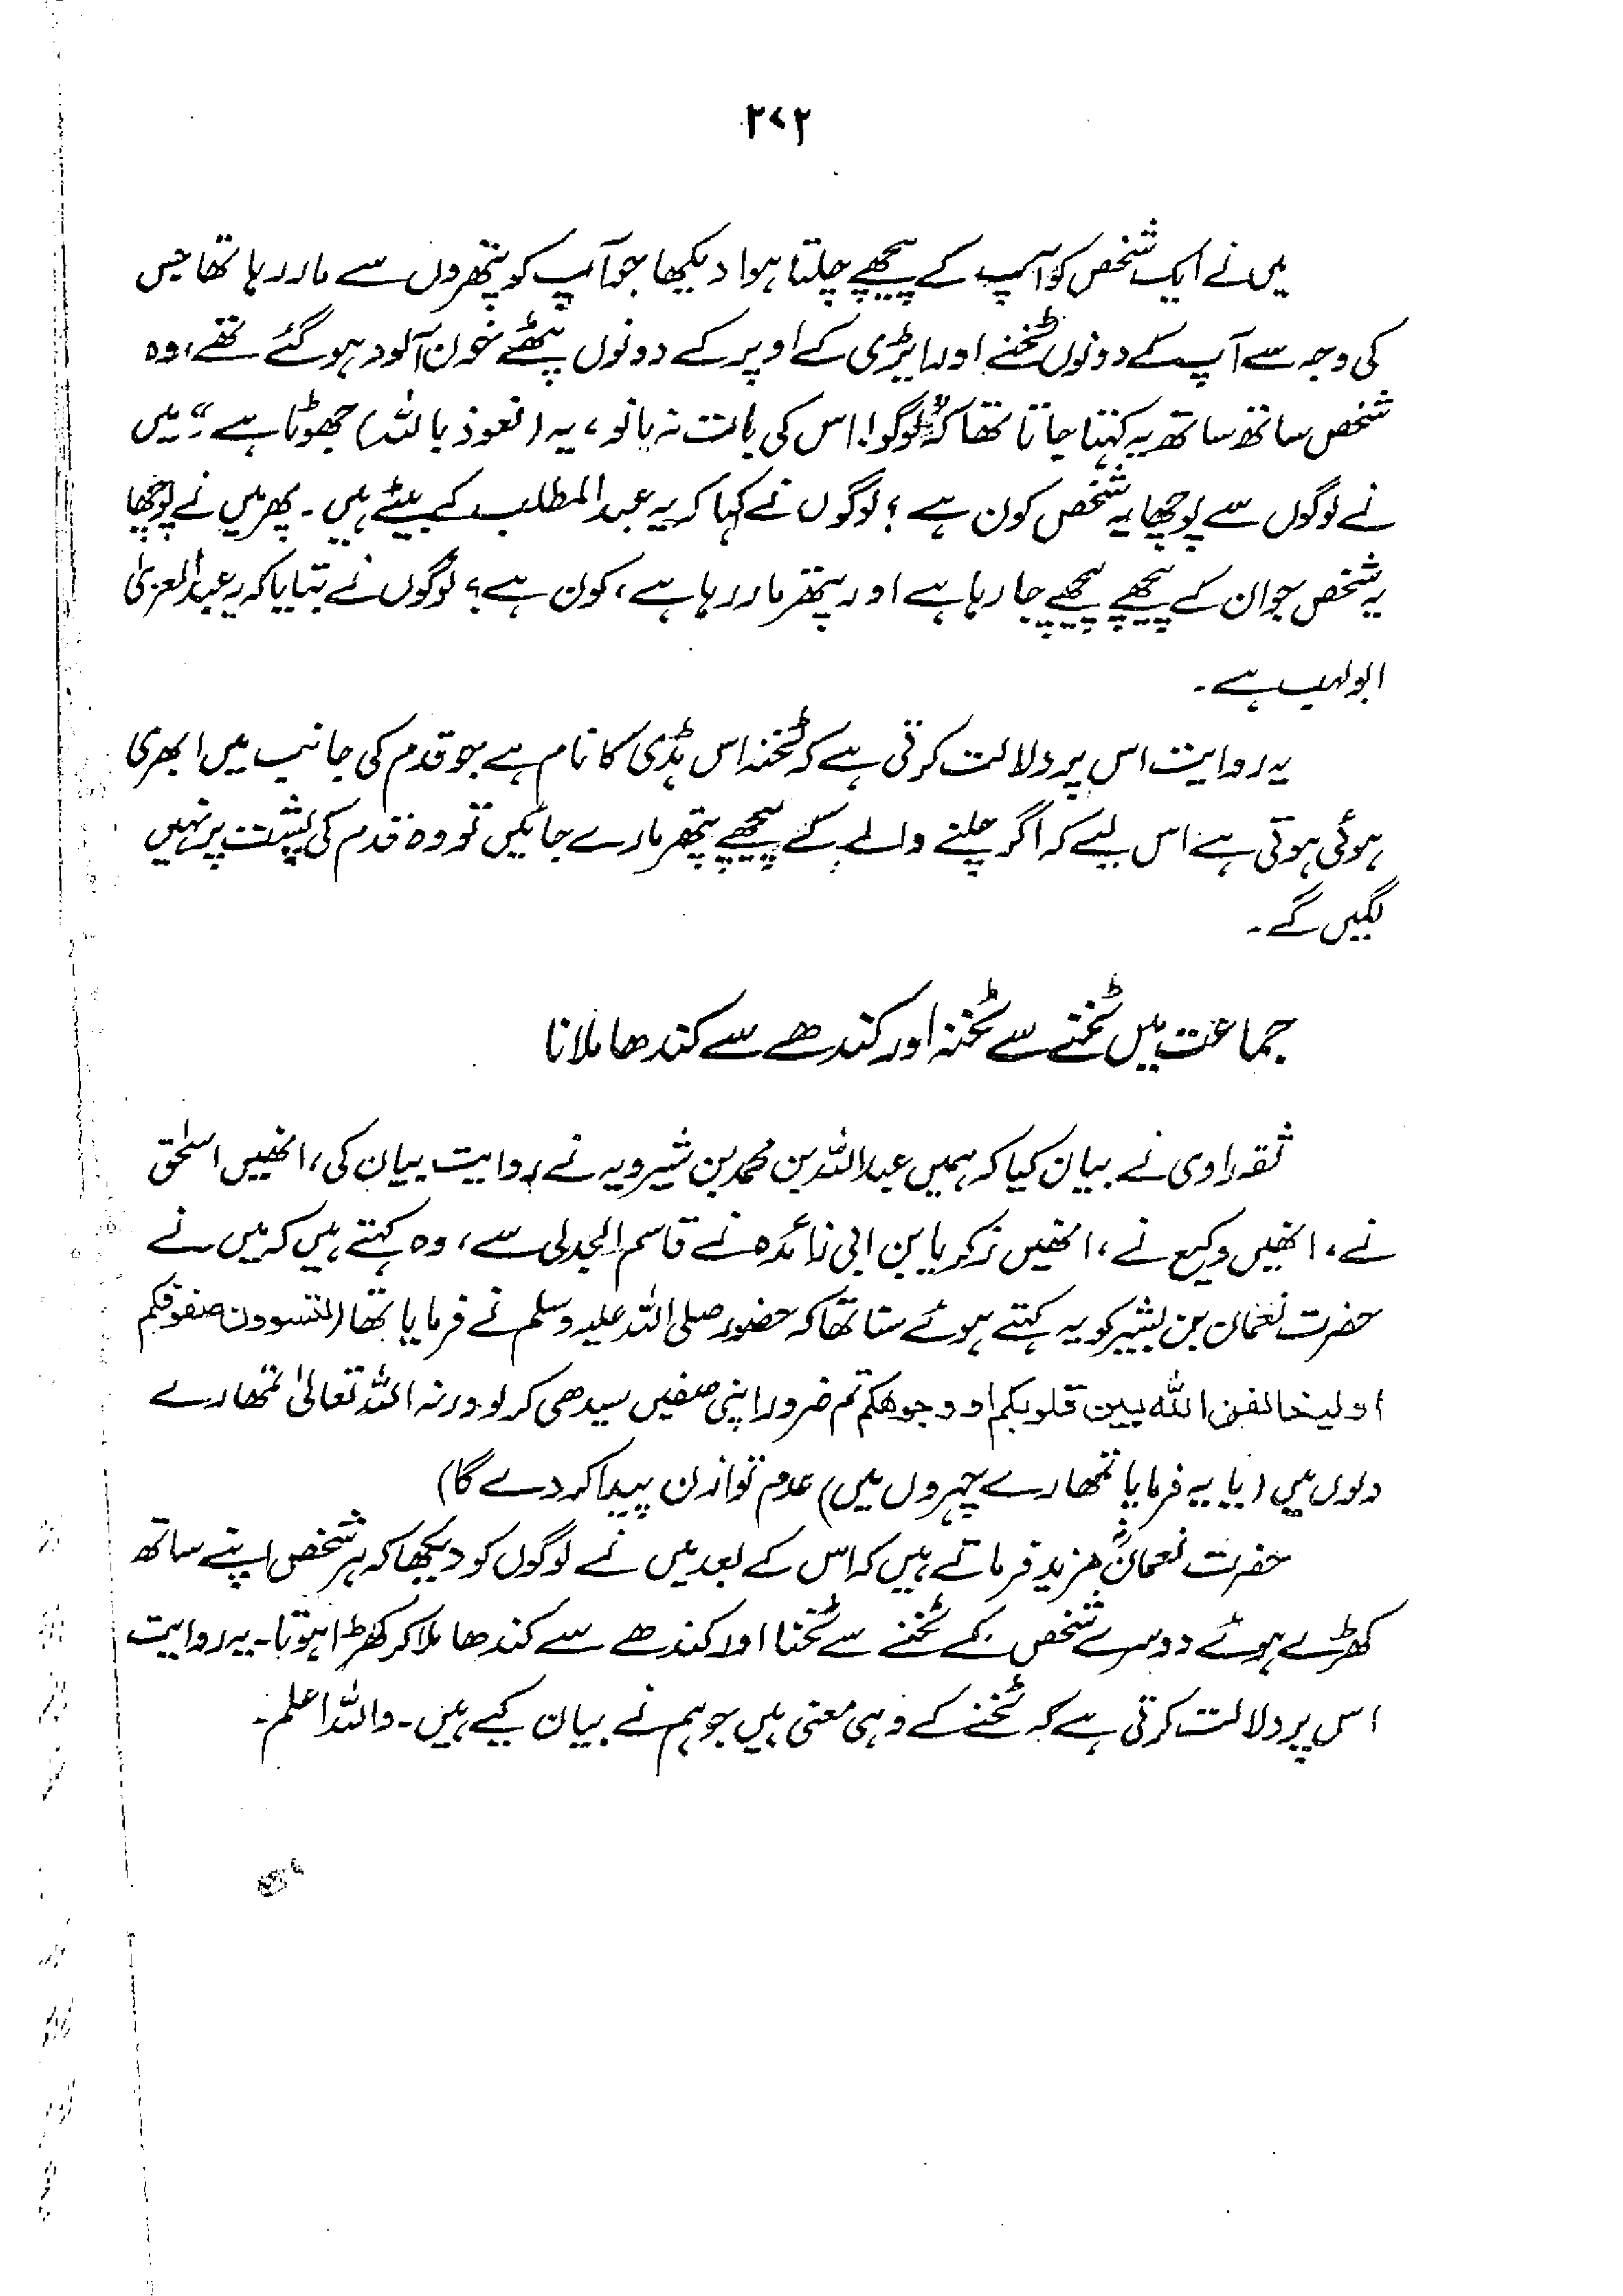 ۲۷۲
میں نے ایک شخص کو آپ کے پیچھے چلتا ہوا دیکھا جو آپ کو پتھروں سے مار رہا تھا جس
کی وجہ سے آپ کے دونوں ٹخنے اور ایڑی کے اوپر کے دونوں پٹھے خون آلود ہوگئے تھے، وہ
شخص ساتھ ساتھ یہ کہتا جاتا تھا کہ "لوگو! اس کی بات نہ مانو، یہ (نعوذ باللہ) جھوٹا ہے"۔ میں
نے لوگوں سے پوچھا یہ شخص کون ہے؟ لوگوں نے کہا کہ یہ عبدالمطلب کے بیٹے ہیں۔ پھر میں نے پوچھا
یہ شخص جو ان کے پیچھے پیچھے جا رہا ہے اور پتھر مار رہا ہے، کون ہے؟ لوگوں نے بتایا کہ یہ عبدالعزیٰ
ابولہب ہے۔
یہ روایت اس پر دلالت کرتی ہے کہ ٹخنہ اس ہڈی کا نام ہے جو قدم کی جانب میں ابھری
ہوئی ہوتی ہے اس لیے کہ اگر چلنے والے کے پیچھے پتھر مارے جائیں تو وہ قدم کی پشت پر نہیں
لگیں گے۔
جماعت میں ٹخنے سے ٹخنہ اور کندھے سے کندھا ملانا
ثقہ راوی نے بیان کیا کہ ہمیں عبداللہ بن محمد بن شیرویہ نے روایت بیان کی، انھیں اسحٰق
نے، انھیں وکیع نے، انھیں زکریا بن ابی زائدہ نے قاسم الجدلی سے، وہ کہتے ہیں کہ میں نے
حضرت نعمان بن بشیر کو یہ کہتے ہوئے سنا تھا کہ حضور صلی اللہ علیہ وسلم نے فرمایا تھا (لتسوون صفوفکم
اولیخالفن اللہ بین قلوبکم او وجوھکم تم ضرور اپنی صفیں سیدھی کر لو ورنہ اللہ تعالیٰ تمھارے
دلوں میں (یا یہ فرمایا تمھارے چہروں میں) عدم توازن پیدا کر دے گا)
حضرت نعمانؓ مزید فرماتے ہیں کہ اس کے بعد میں نے لوگوں کو دیکھا کہ ہر شخص اپنے ساتھ
کھڑے ہوئے دوسرے شخص کے ٹخنے سے ٹخنا اور کندھے سے کندھا ملا کر کھڑا ہوتا۔ یہ روایت
اس پر دلالت کرتی ہے کہ ٹخنے کے وہی معنی ہیں جو ہم نے بیان کیے ہیں۔ واللہ اعلم۔